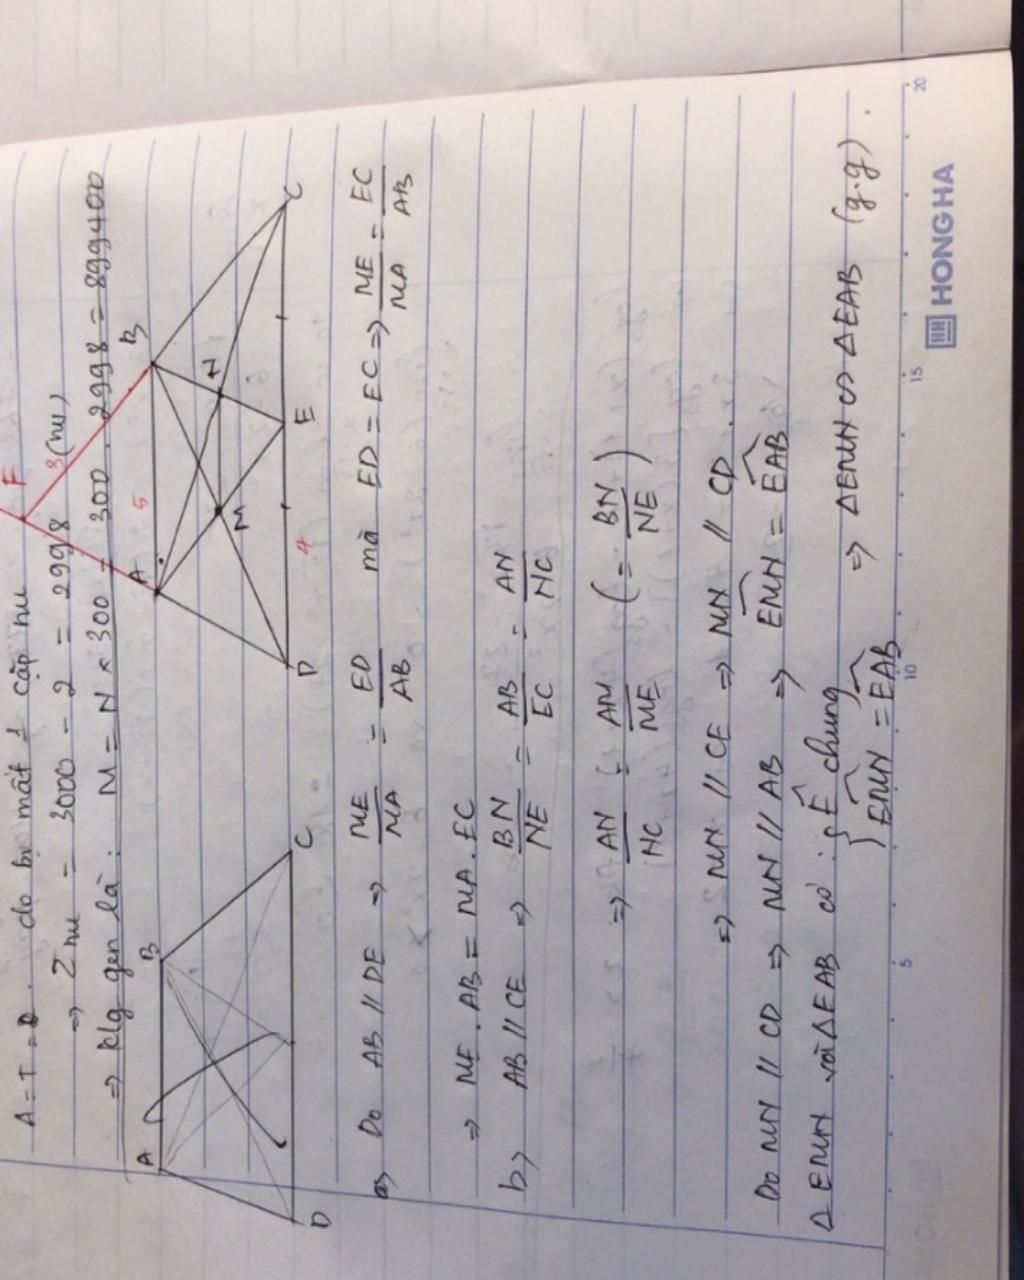 A = T = do bị mất 1 cặp nu
=> Σnu = 3000 - 2 = 2998 (nu)
=> Klg gen là : M = N × 300 = 300 . 2998 = 899400
F
3
A B A 5 B
M N
D C D 4 E C
a, Do AB // DE => ME/MA = ED/AB mà ED = EC => ME/MA = EC/AB
=> ME . AB = MA . EC
b, AB // CE => BN/NE = AB/EC = AN/NC
=> AN/NC = AM/ME (= BN/NE)
=> MN // CE => MN // CD.
Do MN // CD => MN // AB => EMN = EAB
Δ EMN và Δ EAB có : { E chung => Δ EMN ∽ Δ EAB (g.g).
EMN = EAB
5 10 15 20
HH HONG HA